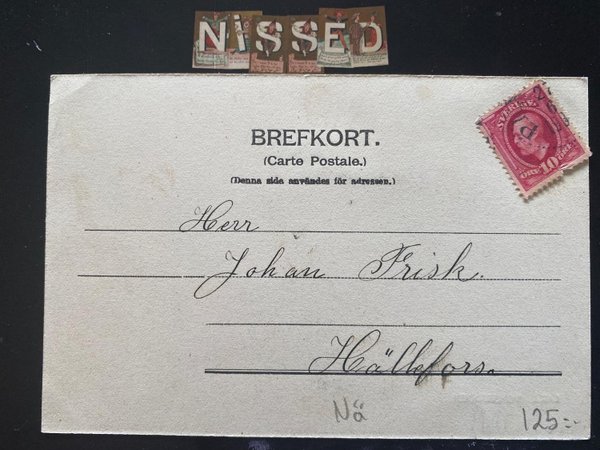 NiSSED
BREFKORT.
(Carte Postale.)
(Denna sida användes för adressen.)
SVERIGE
10
ÖRE
ÖRE
Herr
Johan Frisk.
Hällefors.
Nä
125:-